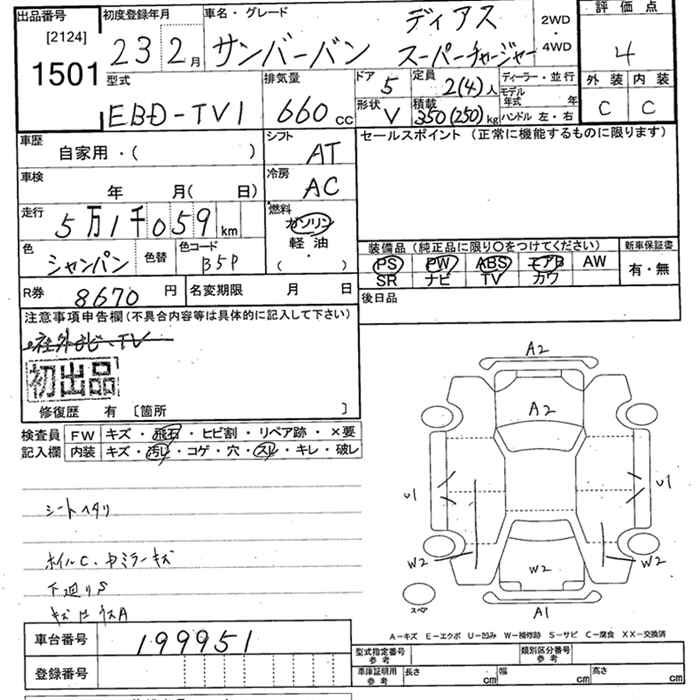 出品番号 初度登録年月 車名・グレード ディアス 2WD・4WD 評価点
[2124] 1501 23 2月 サンバーバン スーパーチャージャー 4
型式 排気量 ドア 5 定員 2(4)人 ディーラー・並行 外装 内装
EBD-TV1 660cc 形状 V 積載 350(250)kg モデル年式 年 ハンドル 左・右 C C
車歴 シフト セールスポイント (正常に機能するものに限ります)
自家用・( ) AT
車検 冷房
年 月( 日) AC
走行 燃料
5万1千059km ガソリン
色 色替 色コード 軽油 装備品(純正品に限り○をつけてください) 新車保証書
シャンパン B5P ( ・ ) PS PW ABS エアB AW 有・無
SR ナビ TV カワ
R券 8670円 名変期限 月 日 後日品
注意事項申告欄(不具合内容等は具体的に記入して下さい)
社外ナビ・TV
初出品
修復歴 有 〔箇所 〕
検査員 FW キズ・飛石・ヒビ割・リペア跡・×要
記入欄 内装 キズ・汚れ・コゲ・穴・スレ・キレ・破レ
A2
A2
U1 U1
シートヘタリ
W2 W2 W2
ホイルC、ミラーキズ
下廻りS
スペア A1
A-キズ E-エクボ U-凹み W-補修跡 S-サビ C-腐食 XX-交換済
車台番号 199951 型式指定番号 参考 類別区分番号 参考
登録番号 車庫証明用 参考 長さ cm 幅 cm 高さ cm